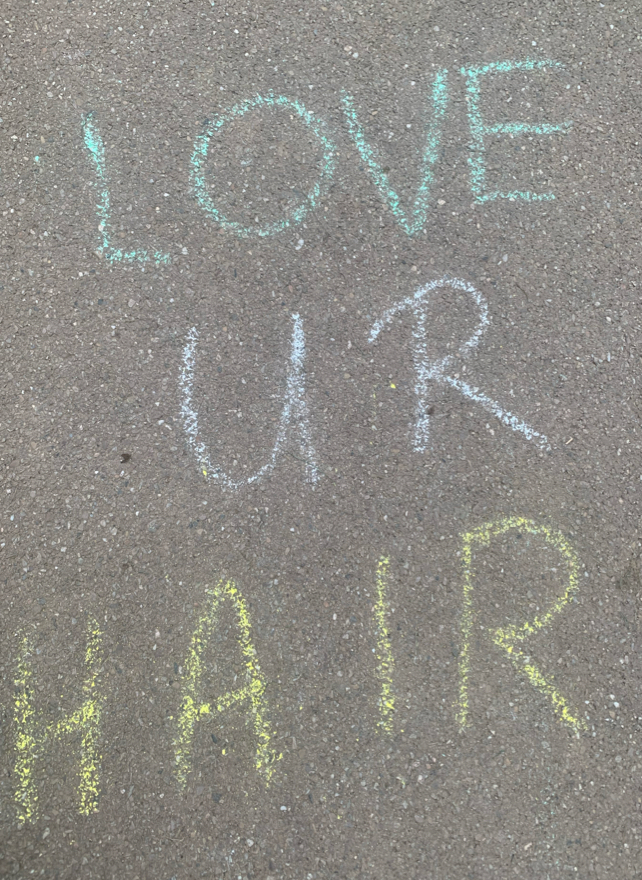 LOVE
UR
HAIR